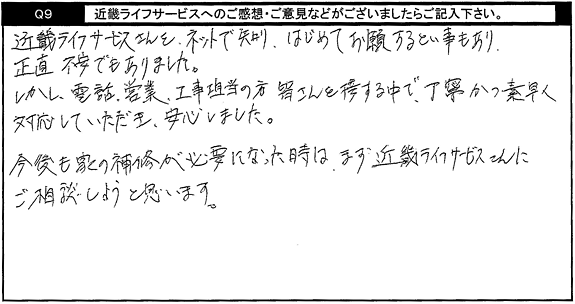 Q9 近畿ライフサービスへのご感想・ご意見などがございましたらご記入下さい。
近畿ライフサービスさんを、ネットで知り、はじめてお願するという事もあり、
正直 不安でもありました。
しかし、電話、営業、工事担当の方 皆さんを接する中で、丁寧かつ素早く
対応していただき、安心しました。
今後も家の補修が必要になった時は、まず近畿ライフサービスさんに
ご相談しようと思います。